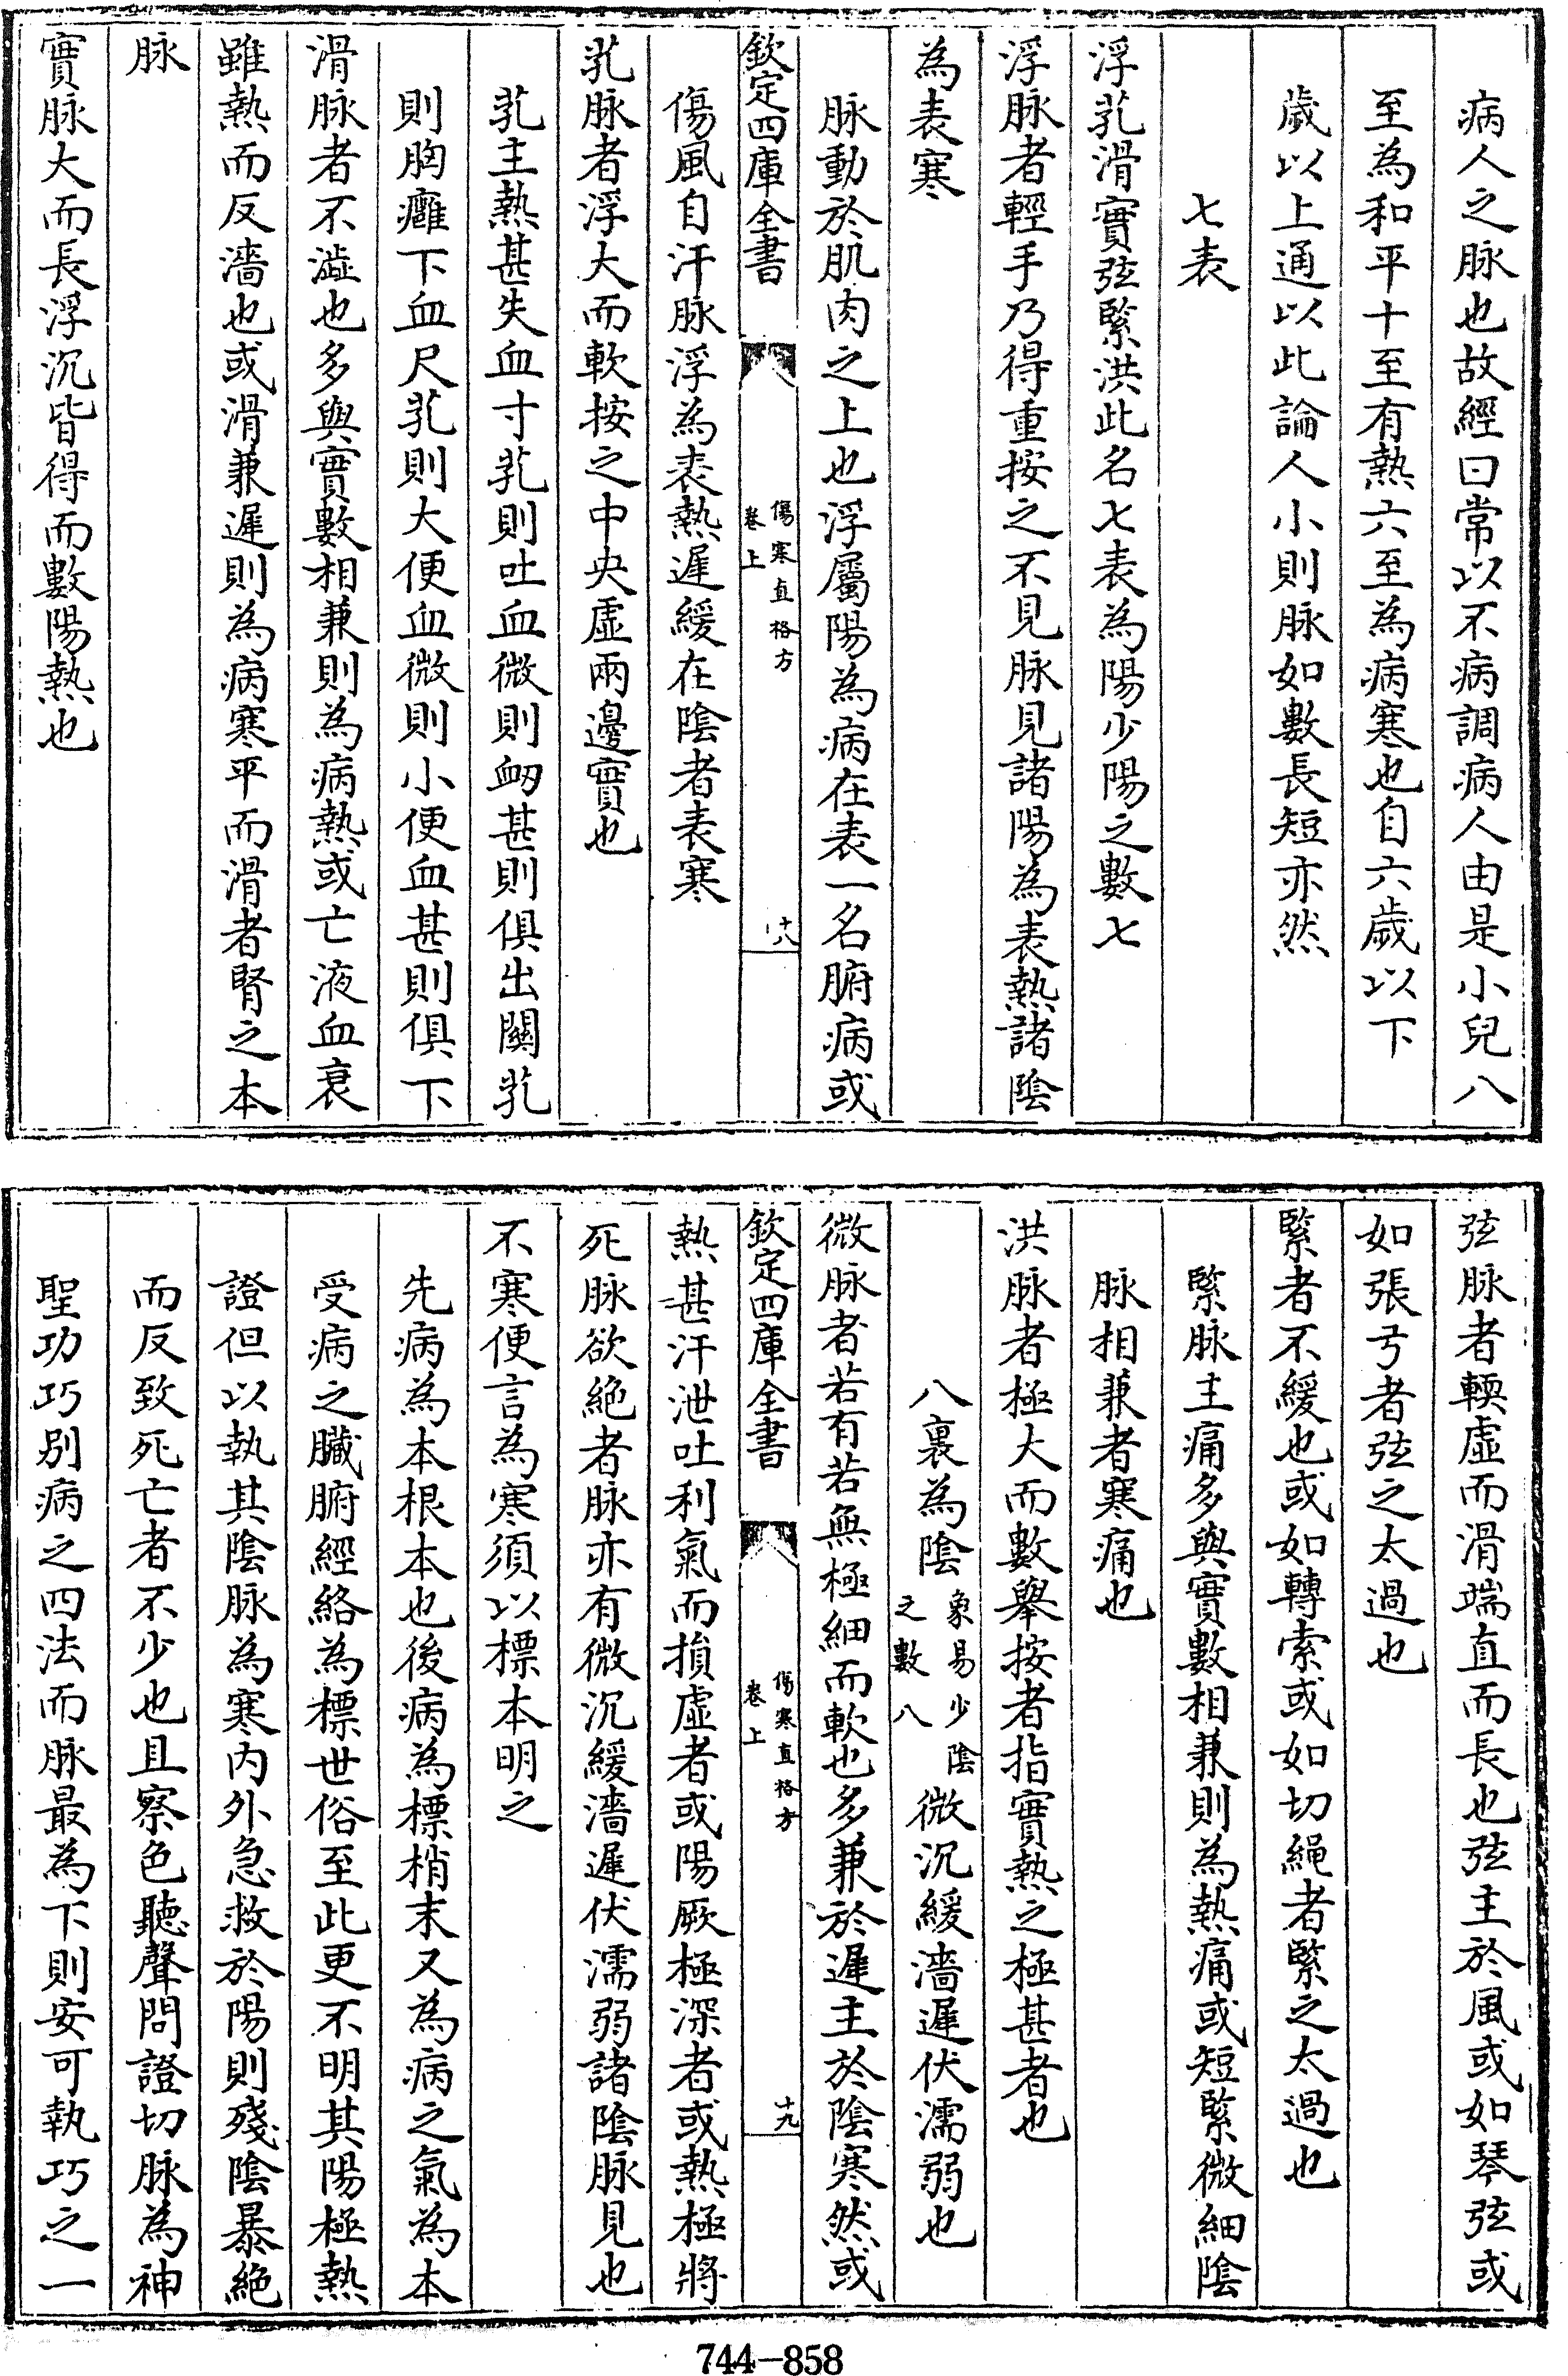 病人之脉也故經曰常以不病調病人由是小兒八
至為和平十至有熱六至為病寒也自六歲以下
歲以上通以此論人小則脉如數長短亦然
七表
浮芤滑實弦緊洪此名七表為陽少陽之數七
浮脉者輕手乃得重按之不見脉見諸陽為表熱諸陰
為表寒
脉動於肌肉之上也浮屬陽為病在表一名腑病或
欽定四庫全書
傷寒直格方
卷上
十八
傷風自汗脉浮為表熱遲緩在陰者表寒
芤脉者浮大而軟按之中央虛兩邊實也
芤主熱甚失血寸芤則吐血微則衂甚則俱出關芤
則胸癰下血尺芤則大便血微則小便血甚則俱下
滑脉者不澁也多與實數相兼則為病熱或亡液血衰
雖熱而反濇也或滑兼遲則為病寒平而滑者腎之本
脉
實脉大而長浮沉皆得而數陽熱也
弦脉者輭虛而滑端直而長也弦主於風或如琴弦或
如張弓者弦之太過也
緊者不緩也或如轉索或如切繩者緊之太過也
緊脉主痛多與實數相兼則為熱痛或短緊微細陰
脉相兼者寒痛也
洪脉者極大而數舉按者指實熱之極甚者也
八裏為陰象易少陰之數八微沉緩濇遲伏濡弱也
微脉者若有若無極細而軟也多兼於遲主於陰寒然或
欽定四庫全書
傷寒直格方
卷上
十九
熱甚汗泄吐利氣而損虛者或陽厥極深者或熱極將
死脉欲絶者脉亦有微沉緩濇遲伏濡弱諸陰脉見也
不寒便言為寒須以標本明之
先病為本根本也後病為標梢末又為病之氣為本
受病之臟腑經絡為標世俗至此更不明其陽極熱
證但以執其陰脉為寒內外急救於陽則殘陰暴絶
而反致死亡者不少也且察色聽聲問證切脉為神
聖功巧别病之四法而脉最為下則安可執巧之一
744-858